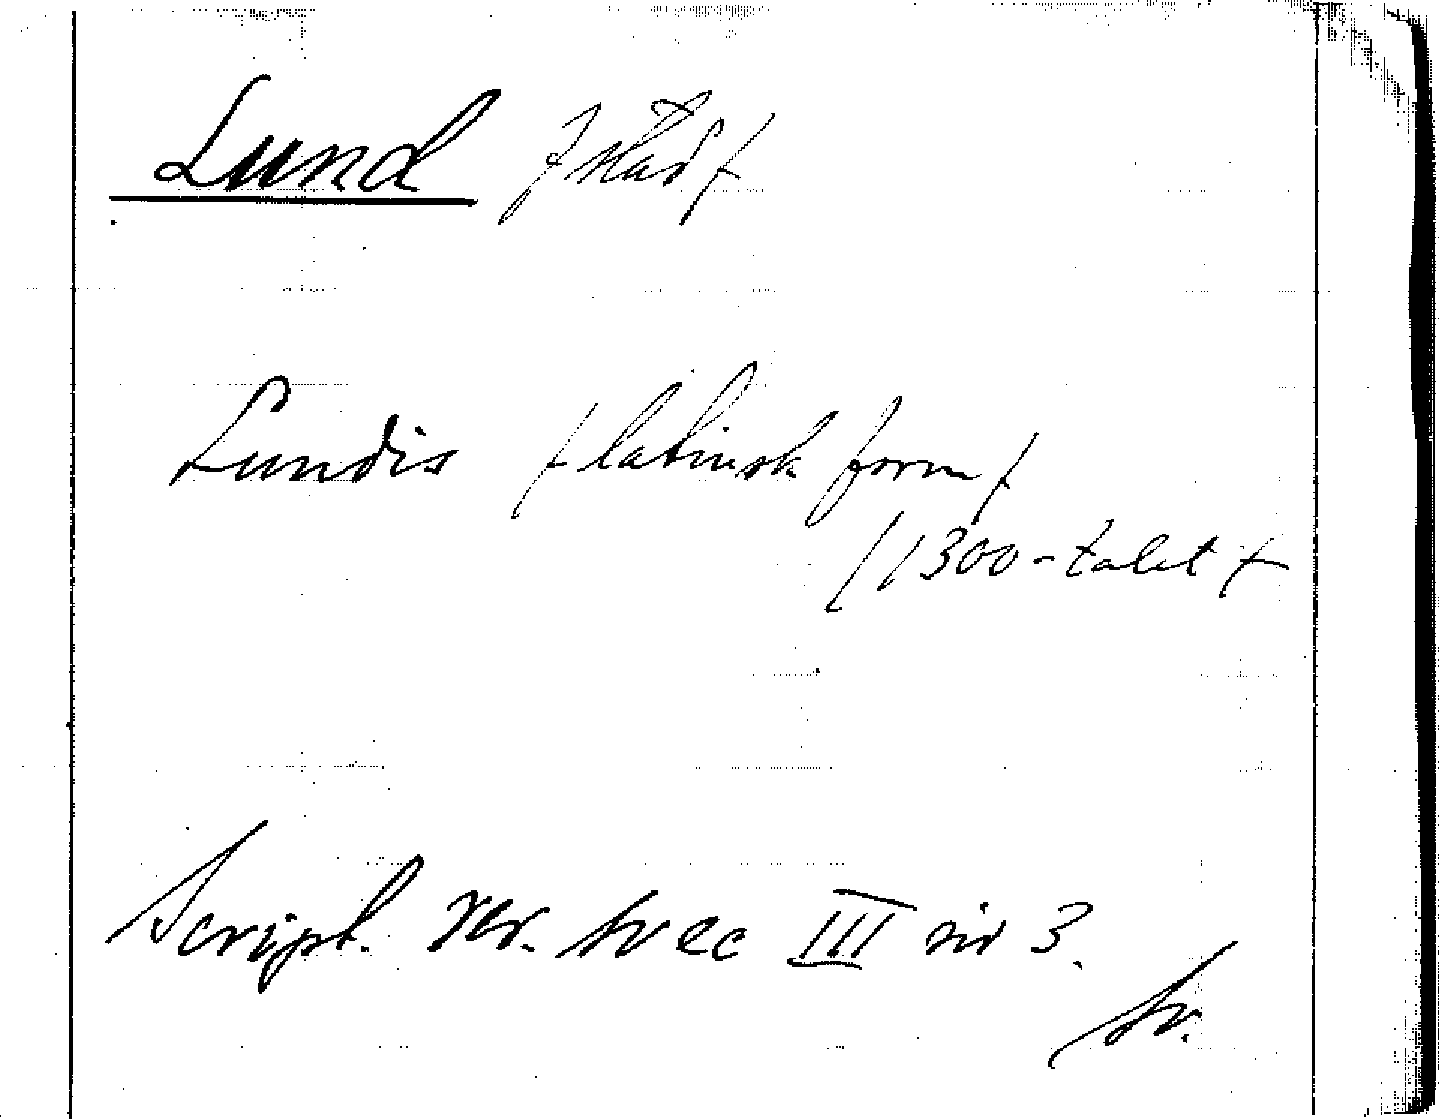 Lund /stad/
Lundis /latinsk form/
/1300-talet/
Script. rer. svec III nr 3.
Sv.